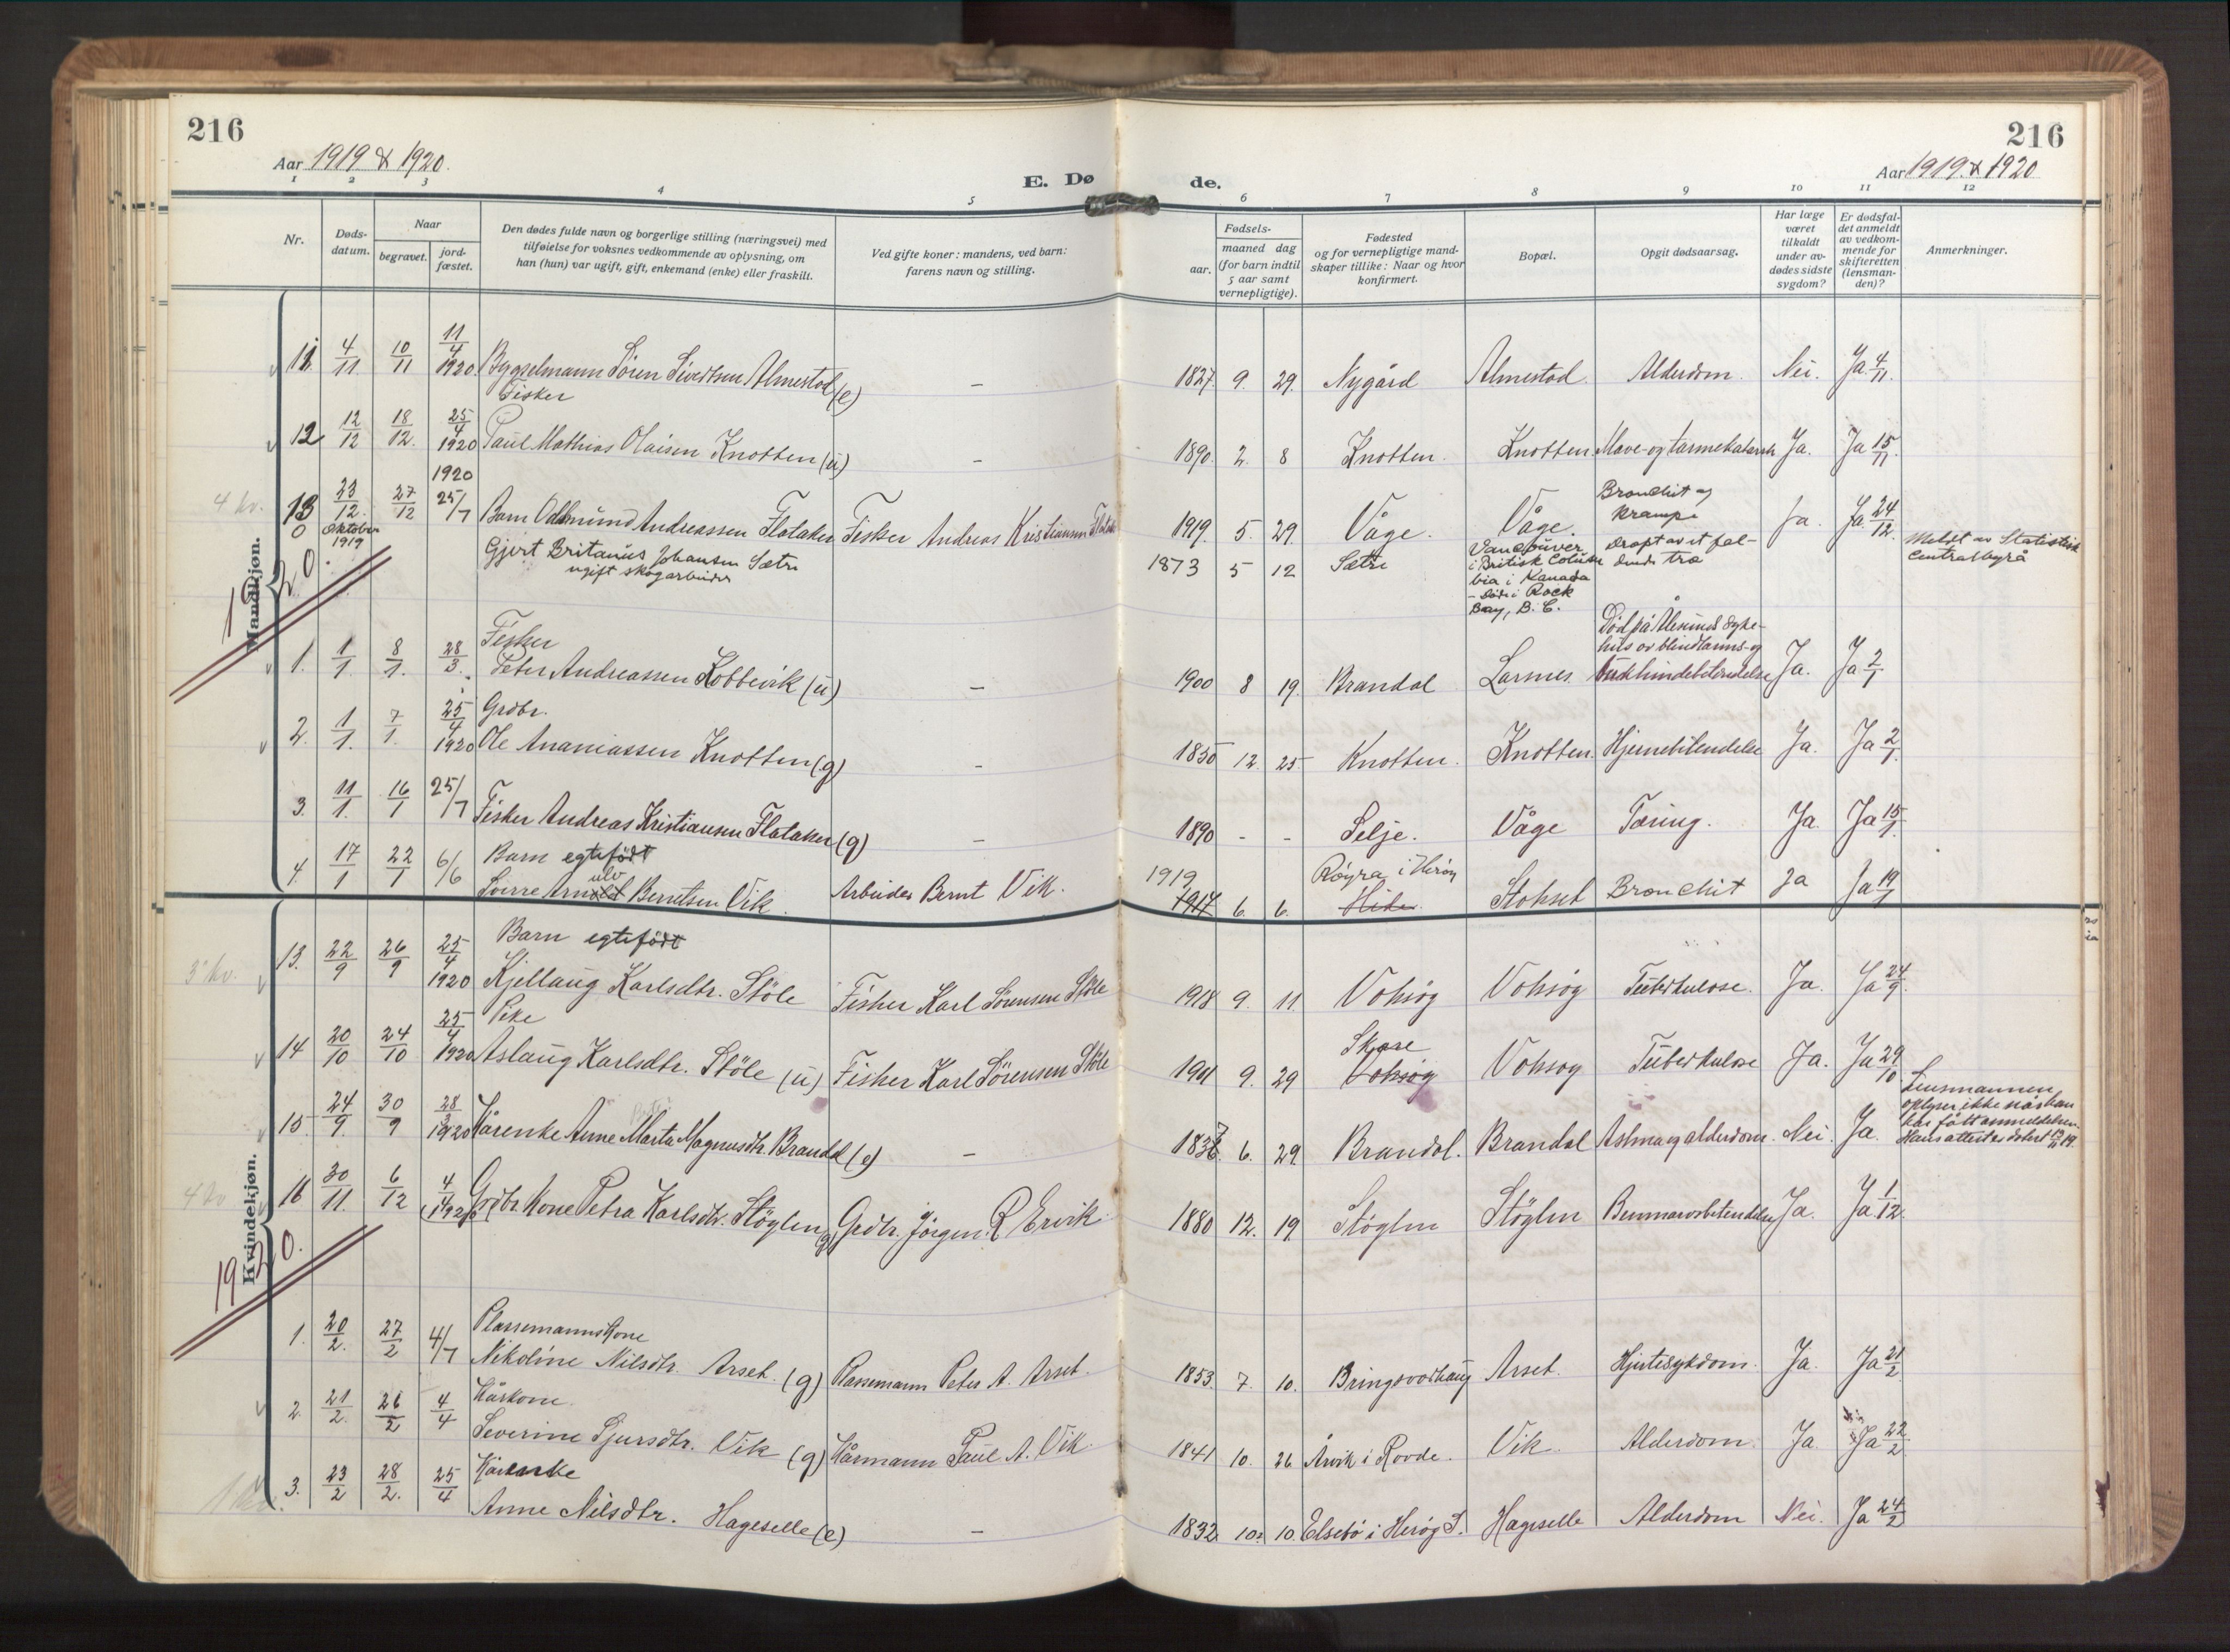 216
216
Aar 1919 & 1920.
Aar 1919 & 1920
E. Dø de.
1 2 3 4 5 6 7 8 9 10 11 12
Nr.
Døds-datum.
Naar
begravet.
jord-fæstet.
Den dødes fulde navn og borgerlige stilling (næringsvei) med
tilføielse for voksnes vedkommende av oplysning, om
han (hun) var ugift, gift, enkemand (enke) eller fraskilt.
Ved gifte koner: mandens, ved barn:
farens navn og stilling.
Fødsels-
aar.
maaned dag
(for barn indtil
5 aar samt
vernepligtige).
Fødested
og for vernepligtige mand-
skaper tillike: Naar og hvor
konfirmert.
Bopæl.
Opgit dødsaarsag.
Har læge
været
tilkaldt
under av-
dødes sidste
sygdom?
Er dødsfal-
det anmeldt
av vedkom-
mende for
skifteretten
(lensman-
den)?
Anmerkninger.
Mandkjøn.
11 4/11 10/11 11/4 1920 Bygselmann Sören Sivertsen Almestad (e) – 1827. 9. 29. Nygård Almestad Alderdom. Nei. Ja 4/11.
Fisker
12 12/12 18/12. 25/4 1920 Paul Mathias Olaisen Knotten (u) – 1890. 2. 8 Knotten. Knotten. Mave- og tarmekatarrh Ja. Ja 15/11.
4 kv.
13 23/12. 27/12 1920 25/7 Barn Oddmund Andreassen Flataker Fisker Andreas Kristiansen 1919. 5. 29. Våge. Våge. Bronchit og krampe Ja. Ja. 24/12.
0 Oktober 1919 Gjert Britanius Johansen Sætre
ugift skogarbeider
1873 5 12 Sætre
Vancouver
i Britisk Colum
bia i Kanada
- Døde i Rock
Bay, B. C.
Dræpt av et fal-
dende træ
Meldt av Statistisk
Centralbyrå
1920.
Fisker
1. 1/1. 8/1. 28/3. Peter Andreassen Kobbevik (u) – 1900 8 19. Brandal Larsnes. Ja. Ja 2/1
Død på Ålesunds syke-
hus av blindtarms- og
bukhindebetændelse
Grdbr.
2. 1/1. 7/1. 25/4 1920 Ole Ananiassen Knotten (g) – 1835 12. 25. Knotten. Knotten. Hjernebetendelse Ja. Ja 2/1.
3. 11/1. 16/1 25/7 Fisker Andreas Kristiansen Flataker (g) – 1890 - - Selje. Våge Tæring. Ja Ja 15/1.
Barn egtefödt
4. 17/1 22/1 6/6 Sverre Arnulv Berntsen Vik. Arbeider Bernt Vik. 1919 1917 6. 6. Røyra i Herøy Stokset Bronchit Ja Ja 19/1
Kvindekjøn.
3 kv.
Barn egtefödt
13. 22/9 26/9 25/4 1920 Kjellaug Karlsdtr. Stöle Fisker Karl Sörensen Stöle 1918 9. 11. Voksøg Voksøg Tuberkulose. Ja. Ja 24/9.
Pike
14 20/10 24/10 25/4 1920 Aslaug Karlsdtr. Stöle (u) Fisker Karl Sörensen Stöle 1901 9. 29 Skare Voksøg Voksøg Tuberkulose Ja. Ja 29/10
15 24/9. 30/9 28/3 1920 Kårenke Anne Marta Magnusdtr. Brandal (e) – 1837. 6. 29 Brandal. Brandal Astma og alderdom. Nei. Ja.
Lensmannen
oplyser ikke når han
har fått anmeldelsen.
Hans attest er datert
4 kv
16 30/11. 6/12 4/4 (1920) Grdbr kone Petra Karlsdtr. Støylen g. Grdbr. Jörgen R Ervik 1880 12. 19. Støylen Støylen Ja. Ja 1/12.
1920.
Plassemannskone
1. 20/2. 27/2 4/7 Nikoline Nilsdtr. Årset. (g) Plassemann Peter A. Årset. 1853. 7. 10. Bringsvorhaug Årset. Hjertesykdom. Ja. Ja 21/2
Kårkone.
2. 21/2. 26/2 4/4 Severine Sjursdtr. Vik (g) Kårmann Paul A. Vik. 1841 10. 26 Årvik i Rovde. Vik. Alderdom. Ja. Ja 22/2.
Kårenke
3. 23/2 28/2. 25/4 Anne Nilsdtr. Hageselle (e) – 1832. 10. 10. Elsebö i Herøy S. Hageselle Alderdom Nei. Ja 24/2